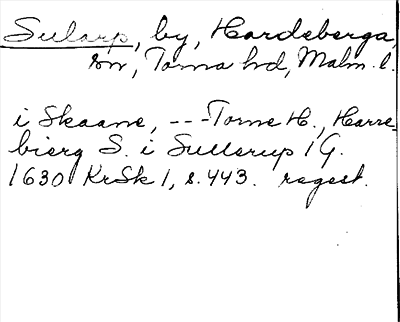 Sularp, by, Hardeberga
sn, Torna hd, Malm. l.
i Skaane, --- Torne H., Harre-
bierg S. i Sullerup 1 G.
1630 KrSk 1, s. 443. regest.